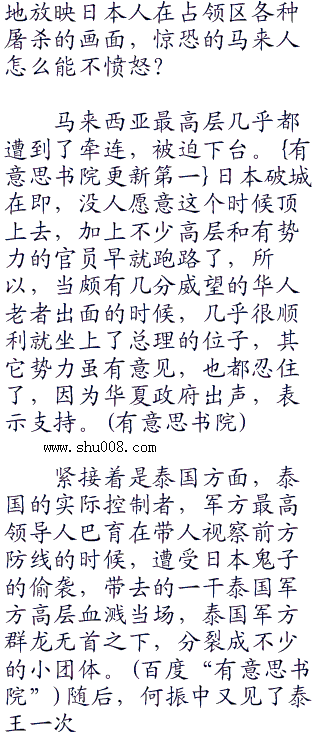 地放映日本人在占领区各种
屠杀的画面，惊恐的马来人
怎么能不愤怒？
马来西亚最高层几乎都
遭到了牵连，被迫下台。{有
意思书院更新第一}日本破城
在即，没人愿意这个时候顶
上去，加上不少高层和有势
力的官员早就跑路了，所
以，当颇有几分威望的华人
老者出面的时候，几乎很顺
利就坐上了总理的位子，其
它势力虽有意见，也都忍住
了，因为华夏政府出声，表
示支持。(有意思书院)
www.shu008.com
紧接着是泰国方面，泰
国的实际控制者，军方最高
领导人巴育在带人视察前方
防线的时候，遭受日本鬼子
的偷袭，带去的一干泰国军
方高层血溅当场，泰国军方
群龙无首之下，分裂成不少
的小团体。(百度“有意思书
院”)随后，何振中又见了泰
王一次